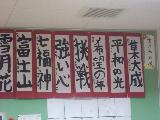 集大成
平和の光
希望の年
挑戦
強い心
七福神
富士山
雪月花